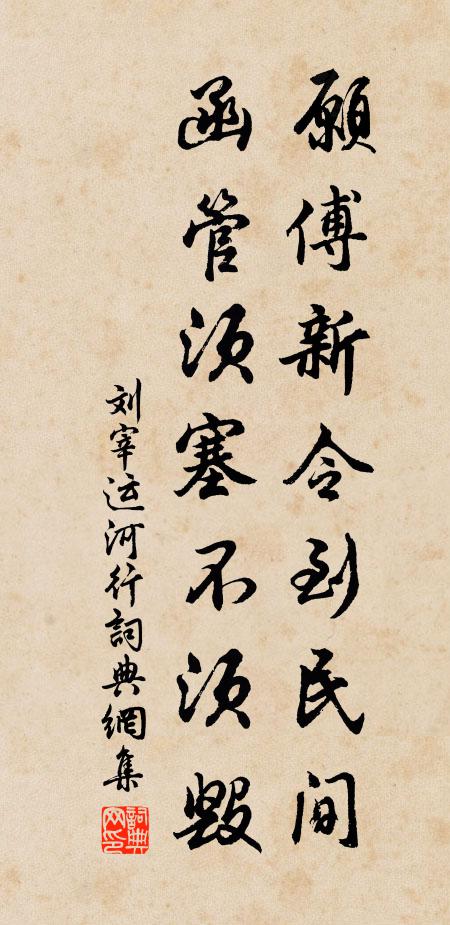 願傅新令到民间
函管须塞不须毁
刘宰运河行詞典網集
詞典网印